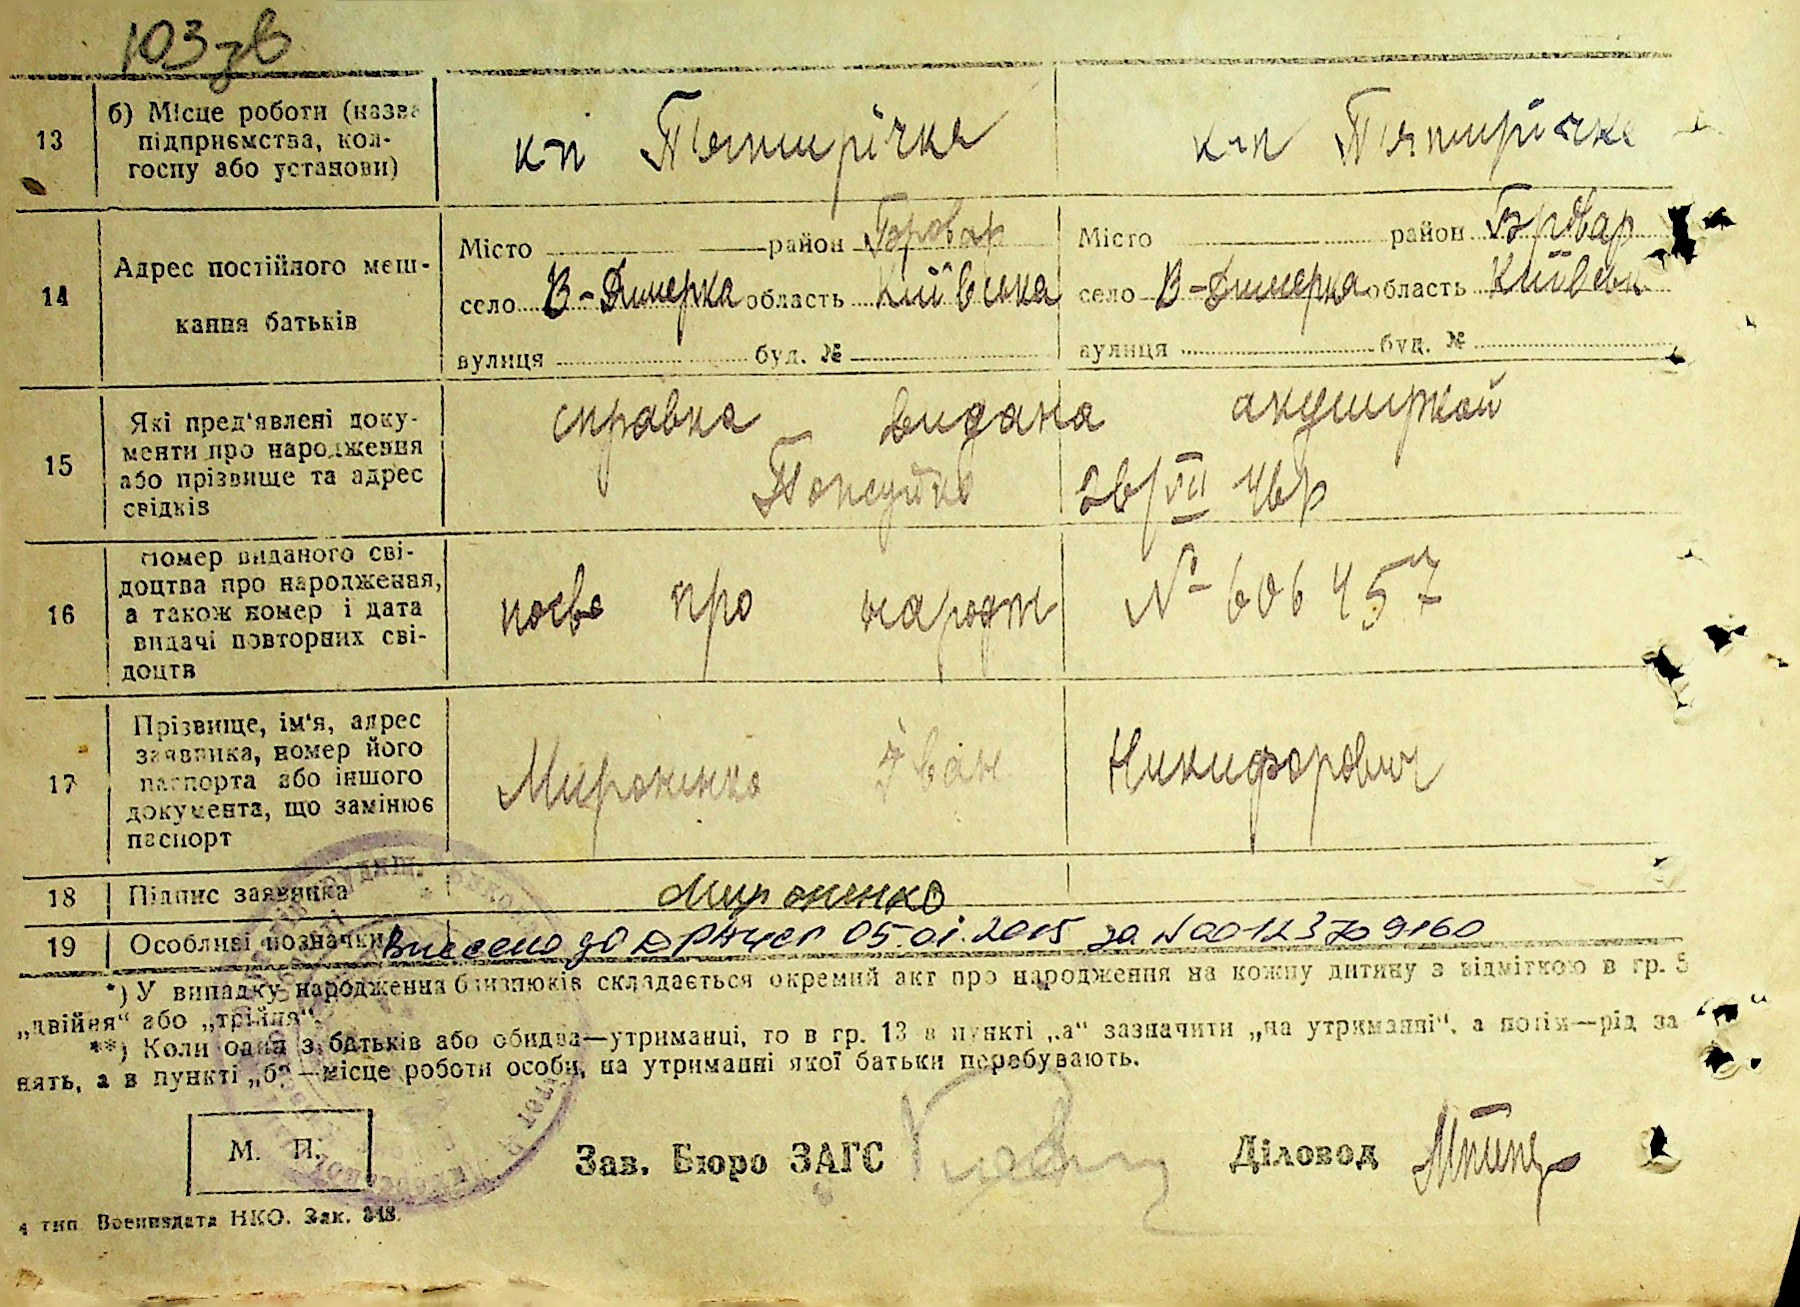 103 зв
13 б) Місце роботи (назва підприємства, кол-госпу або установи) к-п Пʼятирічка к-п Пʼятирічка
14 Адрес постійного меш-кання батьків
Місто район Бровар Місто район Бровар
село В-Димерка область Київська село В-Димерка область Київськ
вулиця буд. № вулиця буд. №
15 Які пред'явлені доку-менти про народження або прізвище та адрес свідків
справка видана акушеркой
26/VII 46р
16 Номер виданого сві-доцтва про народження, а також номер і дата видачі повторних сві-доцтв
посв про народж № 606457
17 Прізвище, ім'я, адрес заявника, номер його паспорта або іншого документа, що замінює паспорт
Мироненко Іван Никифорович
18 Підпис заявника Мироненко
19 Особливі позначки Внесено до ДРАЦСГ 05.01.2015 за №00123709160
*) У випадку народження близнюків складається окремий акт про народження на кожну дитину з відміткою в гр. 5
„двійня“ або „трійня“.
**) Коли один з батьків або обидва—утриманці, то в гр. 13 в пункті „а“ зазначити „на утриманні“, а потім—рід за
нять, а в пункті „б“—місце роботи особи, на утриманні якої батьки перебувають.
М. П. Зав. Бюро ЗАГС Діловод
4 тип. Воениздата НКО. Зак. 348.